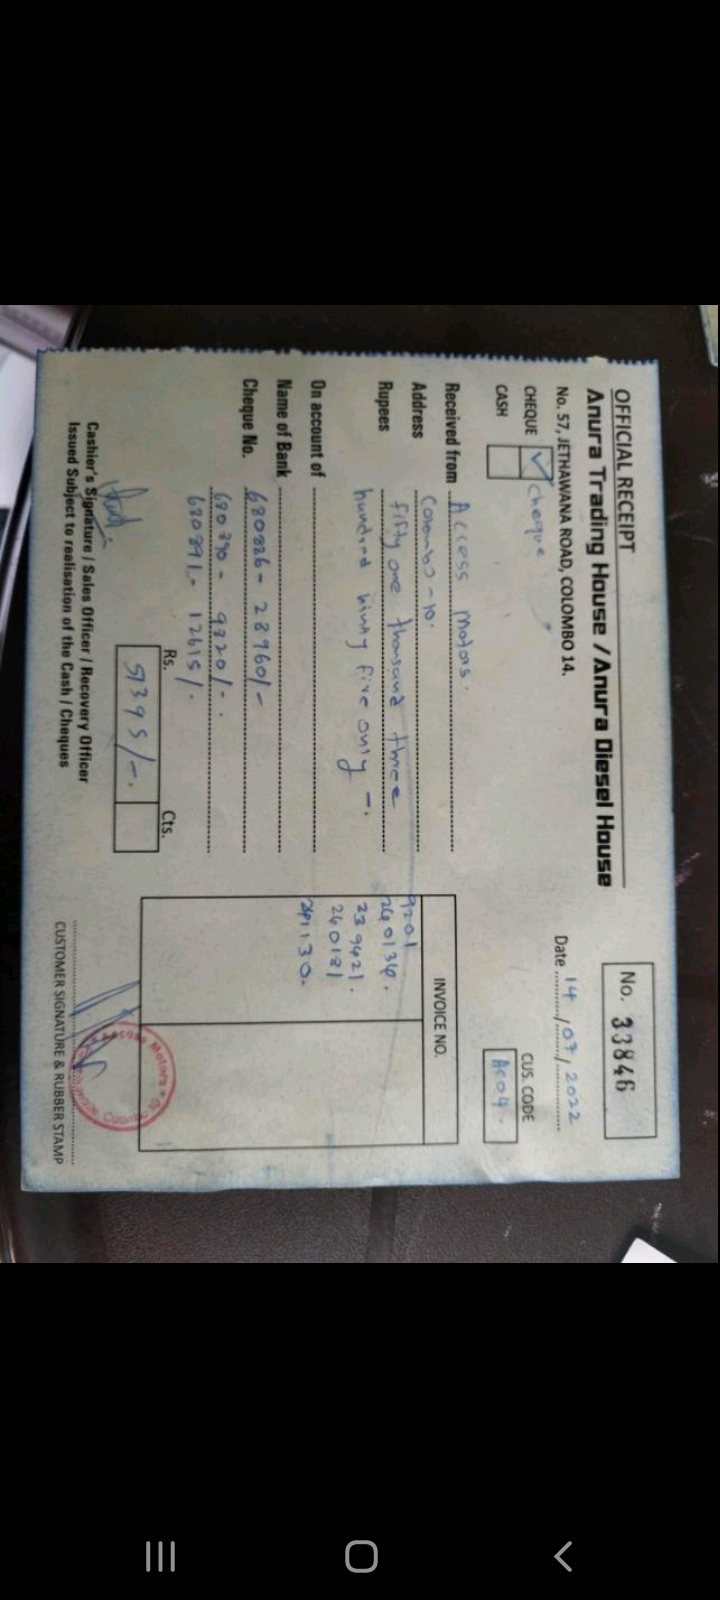 OFFICIAL RECEIPT
Anura Trading House / Anura Diesel House
No. 57, JETHAWANA ROAD, COLOMBO 14.
No. 33846
Date 14/07/2022
CHEQUE ✓ cheque
CASH
CUS. CODE
AC04.
Received from Access Motors.
Address Colombo-10.
Rupees fifty one thousand three
hundred ninty five only -.
On account of
Name of Bank
Cheque No. 680826 - 28960/-
680890 - 9820/-.
680891 - 12615/-.
INVOICE NO.
9201
240134.
239421.
240181
241130.
Rs. Cts.
51395/-.
Cashier's Signature / Sales Officer / Recovery Officer
Issued Subject to realisation of the Cash / Cheques
CUSTOMER SIGNATURE & RUBBER STAMP
Access Motors